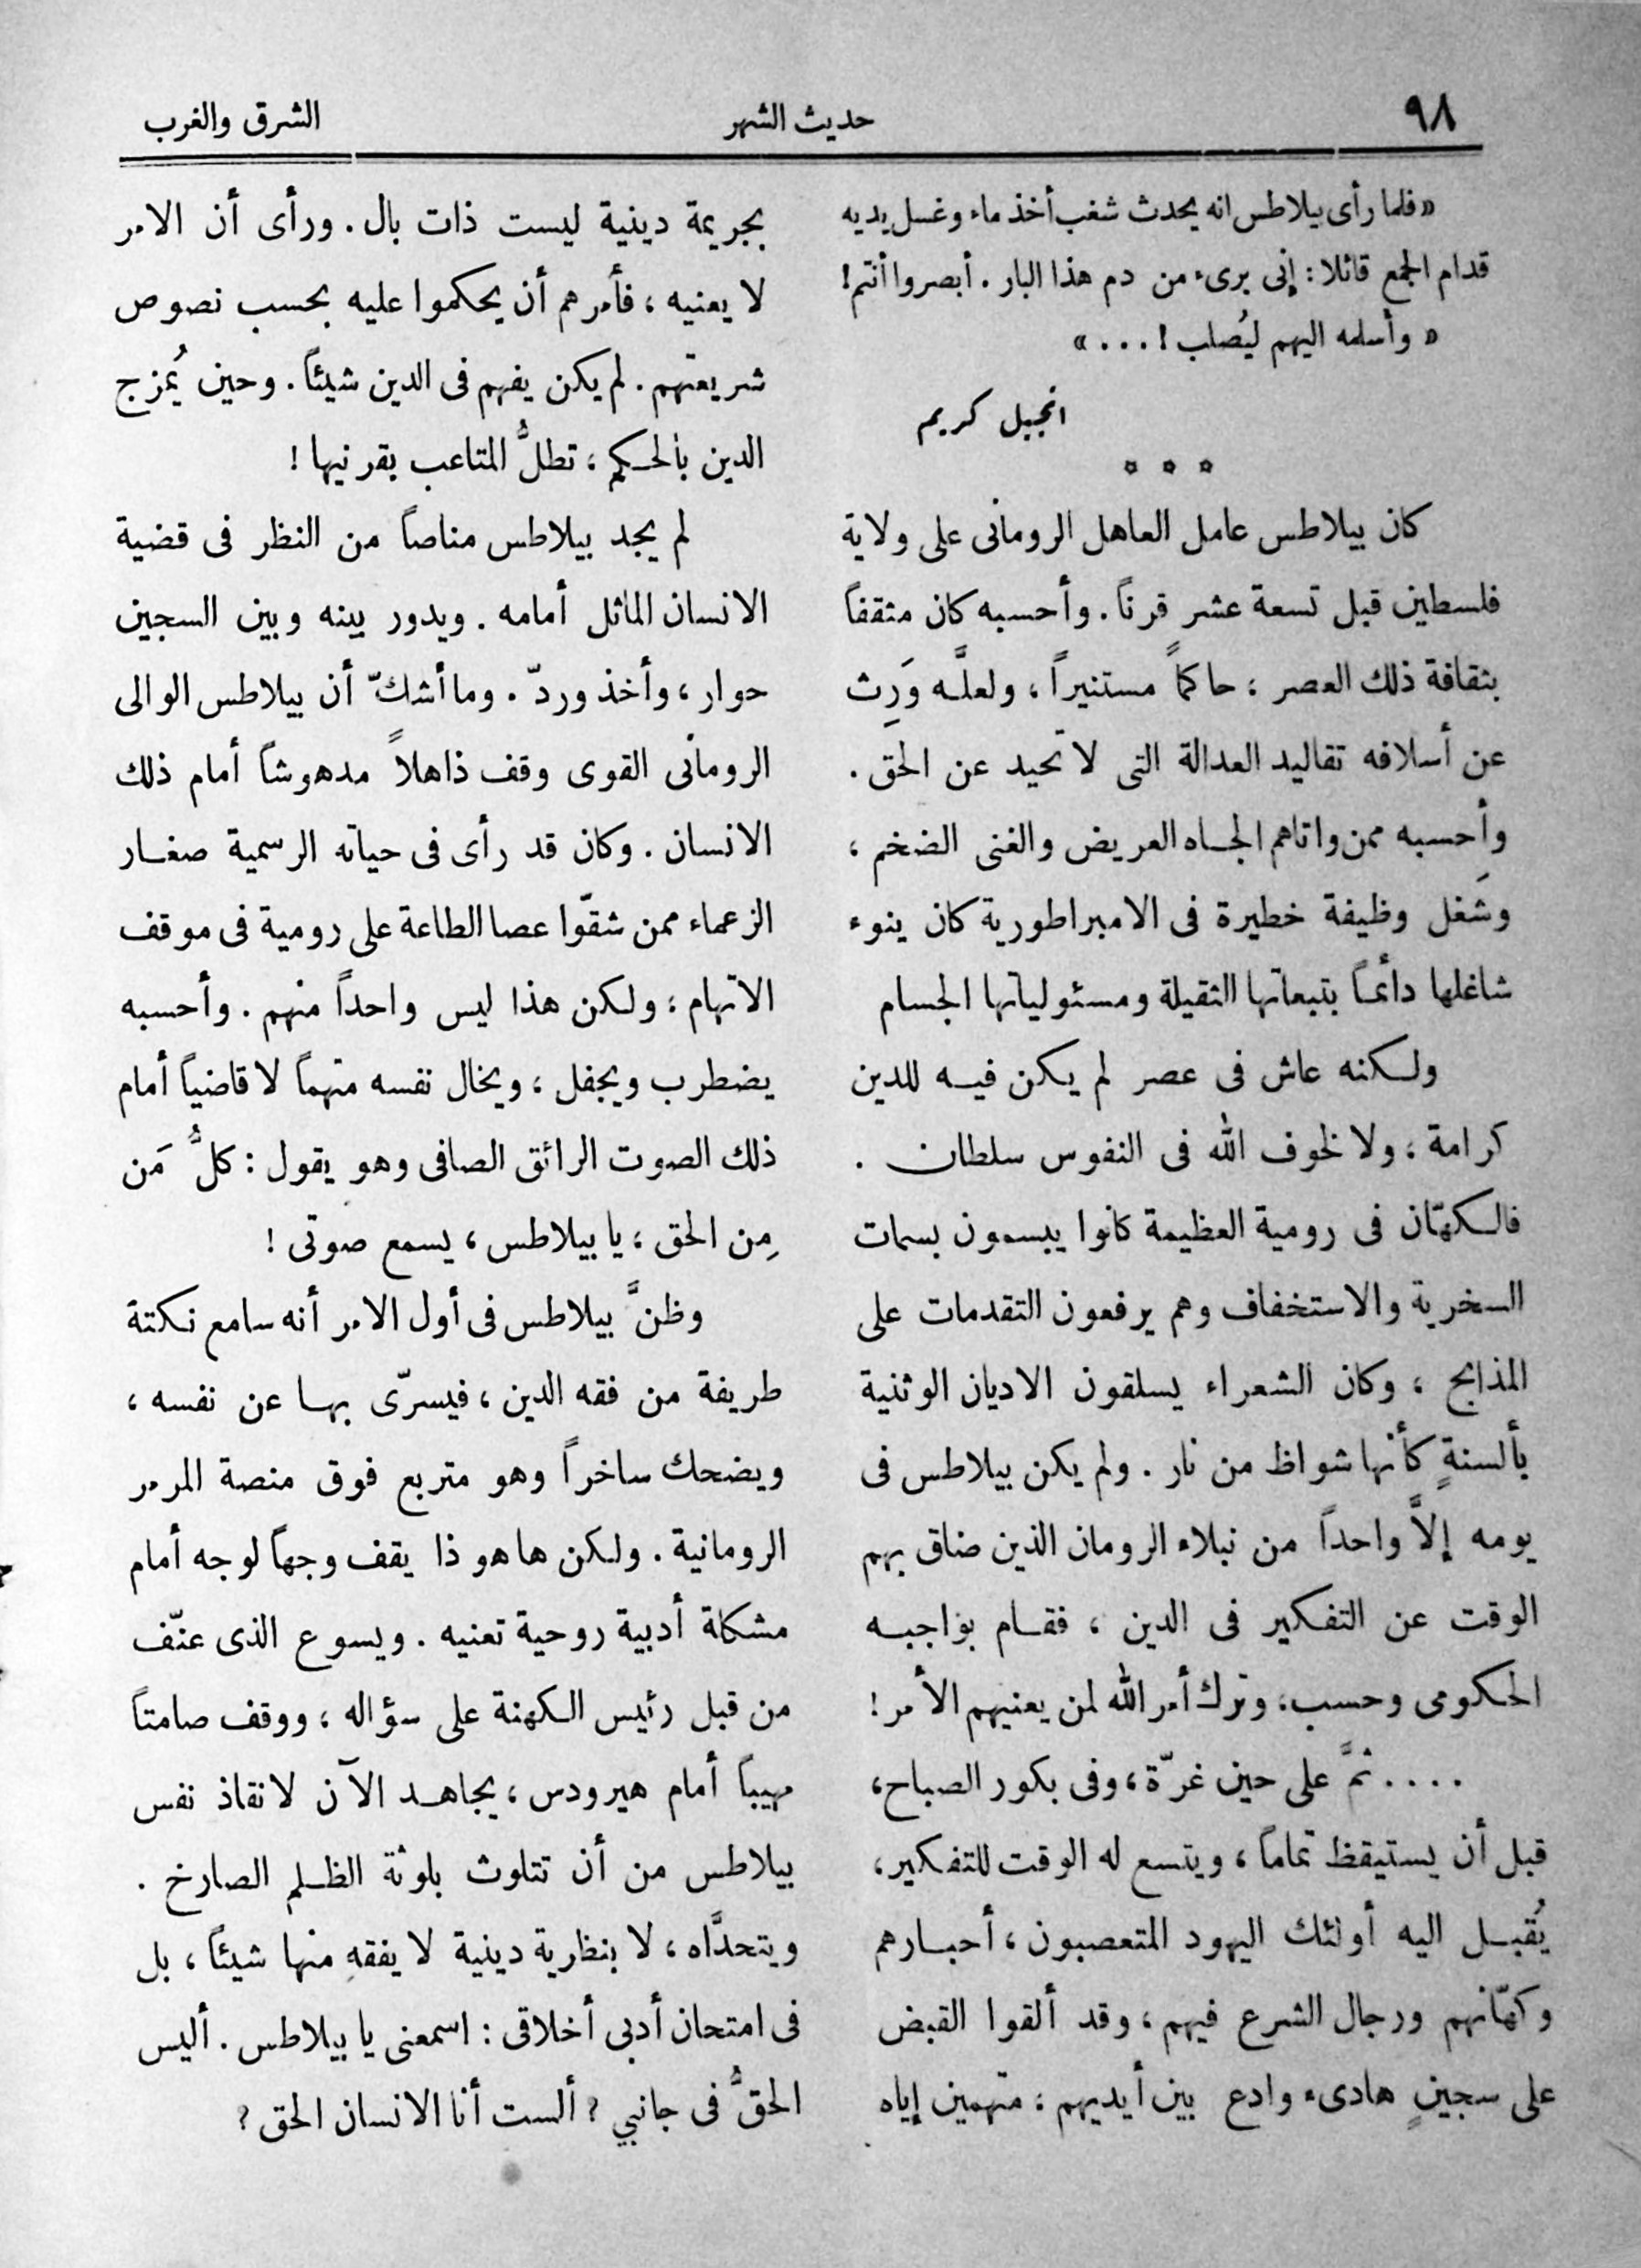 ٩٨
حديث الشهر
الشرق والغرب
«فلما رأى بيلاطس انه يحدث شغب أخذ ماء وغسل يديه
قدام الجمع قائلا : إنى برىء من دم هذا البار . أبصروا أنتم !
« وأسلمه اليهم ليُصلب ! . . . »
انجيل كريم
* * *
كان بيلاطس عامل العاهل الرومانى على ولاية
فلسطين قبل تسعة عشر قرناً . وأحسبه كان مثقفاً
بثقافة ذلك العصر ، حاكماً مستنيراً ، ولعلَّه وَرِث
عن أسلافه تقاليد العدالة التى لا تحيد عن الحق .
وأحسبه ممن واتاهم الجاه العريض والغنى الضخم ،
وشَغل وظيفة خطيرة فى الامبراطورية كان ينوء
شاغلها دائماً بتبعاتها الثقيلة ومسئولياتها الجسام
ولكنه عاش فى عصر لم يكن فيه للدين
كرامة ، ولا لخوف الله فى النفوس سلطان .
فالكهّان فى رومية العظيمة كانوا يبسمون بسمات
السخرية والاستخفاف وهم يرفعون التقدمات على
المذابح ، وكان الشعراء يسلقون الاديان الوثنية
بألسنةٍ كأنها شواظ من نار . ولم يكن بيلاطس فى
يومه إلاَّ واحداً من نبلاء الرومان الذين ضاق بهم
الوقت عن التفكير فى الدين ، فقام بواجبه
الحكومى وحسب، وترك أمر الله لمن يعنيهم الأمر !
. . . . ثمَّ على حين غرّة ، وفى بكور الصباح،
قبل أن يستيقظ تماماً ، ويتسع له الوقت للتفكير،
يُقبل اليه أولئك اليهود المتعصبون ، أحبارهم
وكهّانهم ورجال الشرع فيهم ، وقد ألقوا القبض
على سجينٍ هادىء وادع بين أيديهم ، متّهمين إياه
بجريمة دينية ليست ذات بال . ورأى أن الامر
لا يعنيه ، فأمرهم أن يحكموا عليه بحسب نصوص
شريعتهم . لم يكن يفهم فى الدين شيئاً . وحين يُمزج
الدين بالحكم ، تطلُّ المتاعب بقرنيها !
لم يجد بيلاطس مناصاً من النظر فى قضية
الانسان الماثل أمامه . ويدور بينه وبين السجين
حوار ، وأخذ وردّ . وما أشكّ أن بيلاطس الوالى
الرومانى القوى وقف ذاهلاً مدهوشاً أمام ذلك
الانسان . وكان قد رأى فى حياته الرسمية صغار
الزعماء ممن شقّوا عصا الطاعة على رومية فى موقف
الاتهام ، ولكن هذا ليس واحداً منهم . وأحسبه
يضطرب ويجفل ، ويخال نفسه متهماً لا قاضياً أمام
ذلك الصوت الرائق الصافى وهو يقول : كلُّ مَن
مِن الحق ، يا بيلاطس ، يسمع صوتى !
وظنَّ بيلاطس فى أول الامر أنه سامع نكتة
طريفة من فقه الدين ، فيسرّى بها عن نفسه ،
ويضحك ساخراً وهو متربع فوق منصة المرمر
الرومانية . ولكن ها هو ذا يقف وجهاً لوجه أمام
مشكلة أدبية روحية تعنيه . ويسوع الذى عنّف
من قبل رئيس الكهنة على سؤاله ، ووقف صامتاً
مهيباً أمام هيرودس ، يجاهد الآن لانقاذ نفس
بيلاطس من أن تتلوث بلوثة الظلم الصارخ .
ويتحدَّاه ، لا بنظرية دينية لا يفقه منها شيئاً ، بل
فى امتحان أدبى أخلاقى : اسمعنى يا بيلاطس . أليس
الحقُّ فى جانبي ? ألست أنا الانسان الحق ?